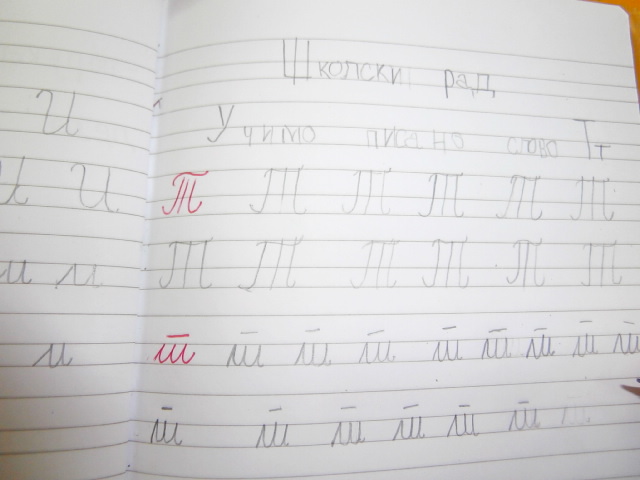 И
И И
и и
и
Школски рад
Учимо писано слово Тт
Т Т Т Т Т Т
Т Т Т Т Т Т
т т т т т т т т т
т т т т т т т